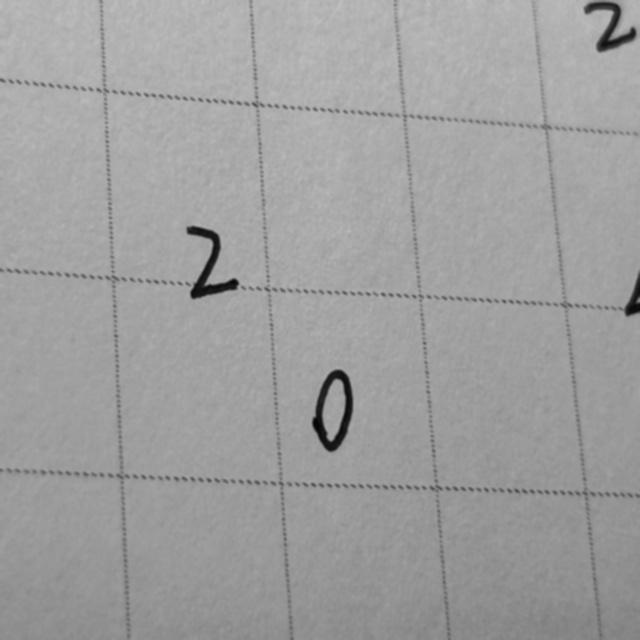 2
2
0